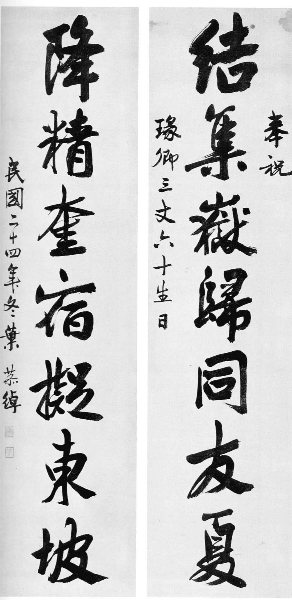 奉祝
結集嶽歸同友夏
瑑卿三丈六十生日
降精奎宿擬東坡
民國二十四年冬葉恭綽